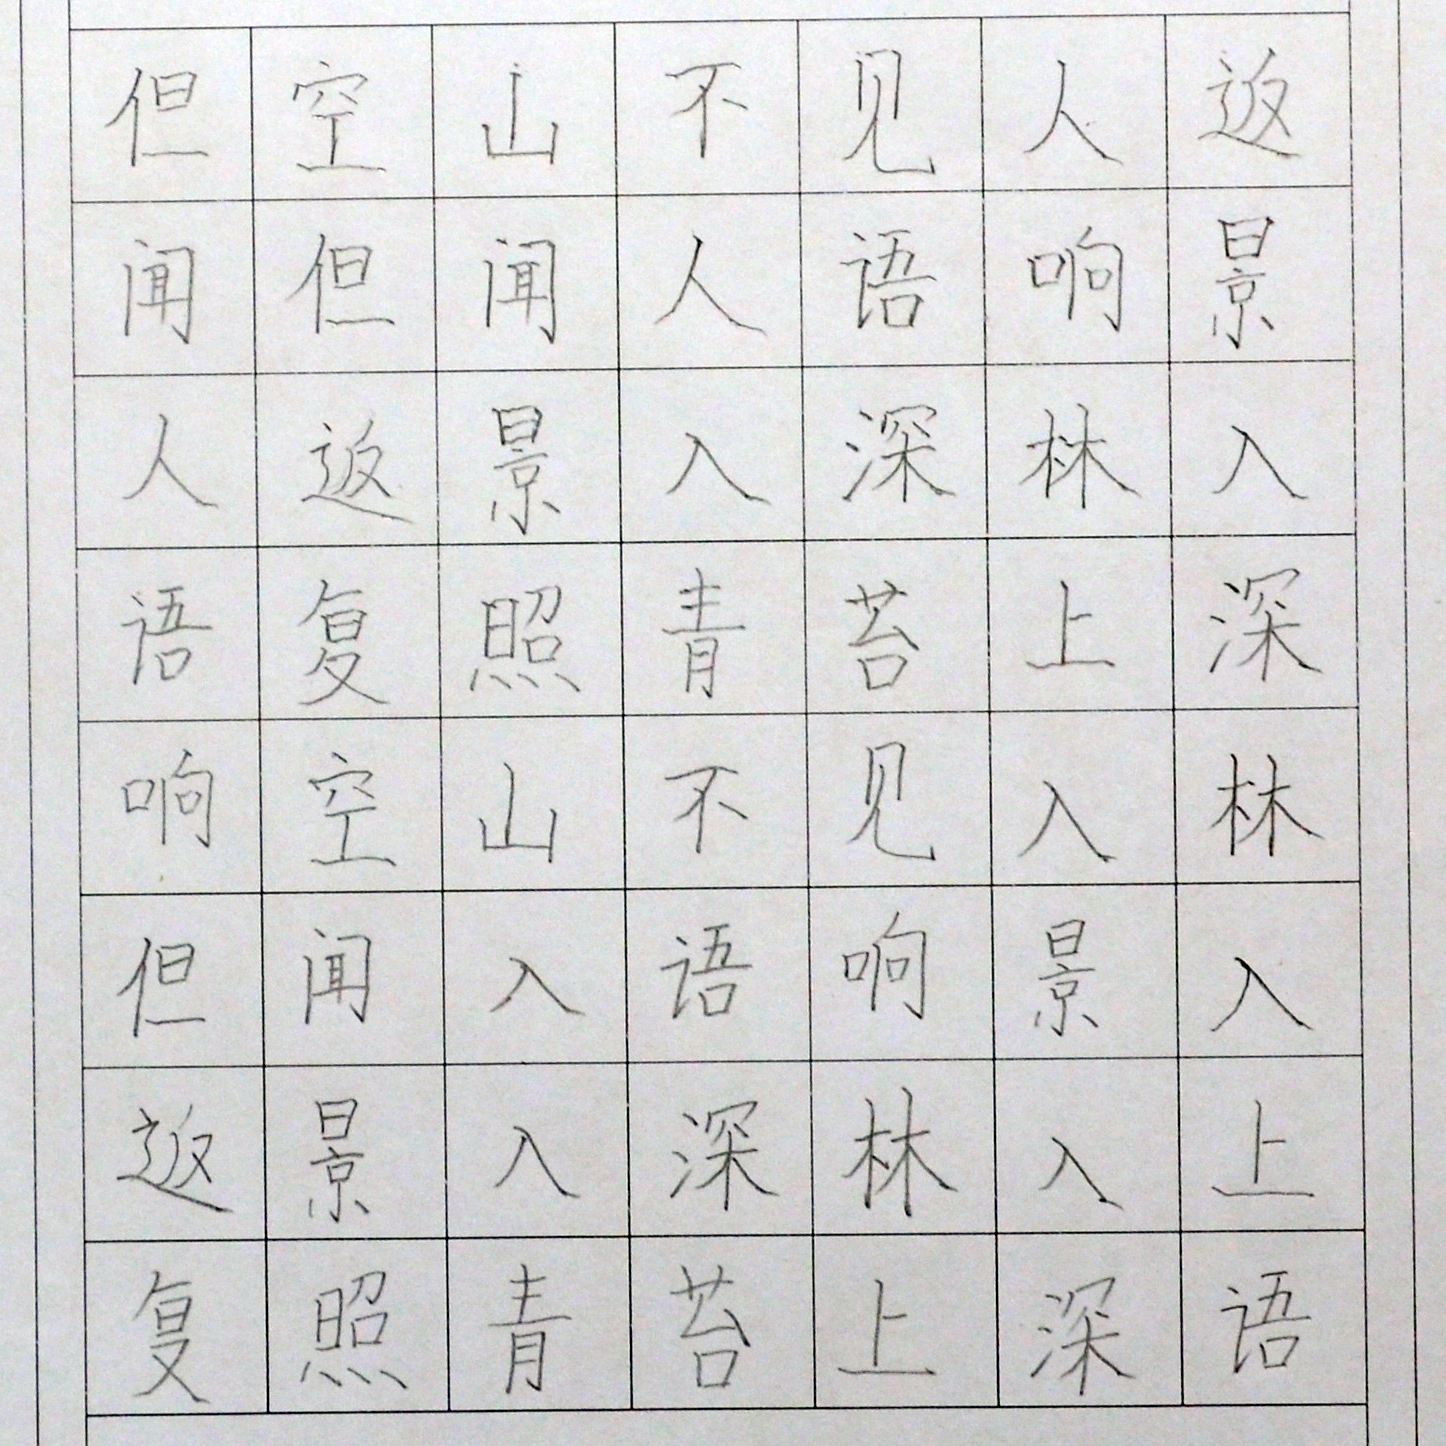 但空山不见人返
闻但闻人语响景
人返景入深林入
语复照青苔上深
响空山不见入林
但闻入语响景入
返景入深林入上
复照青苔上深语